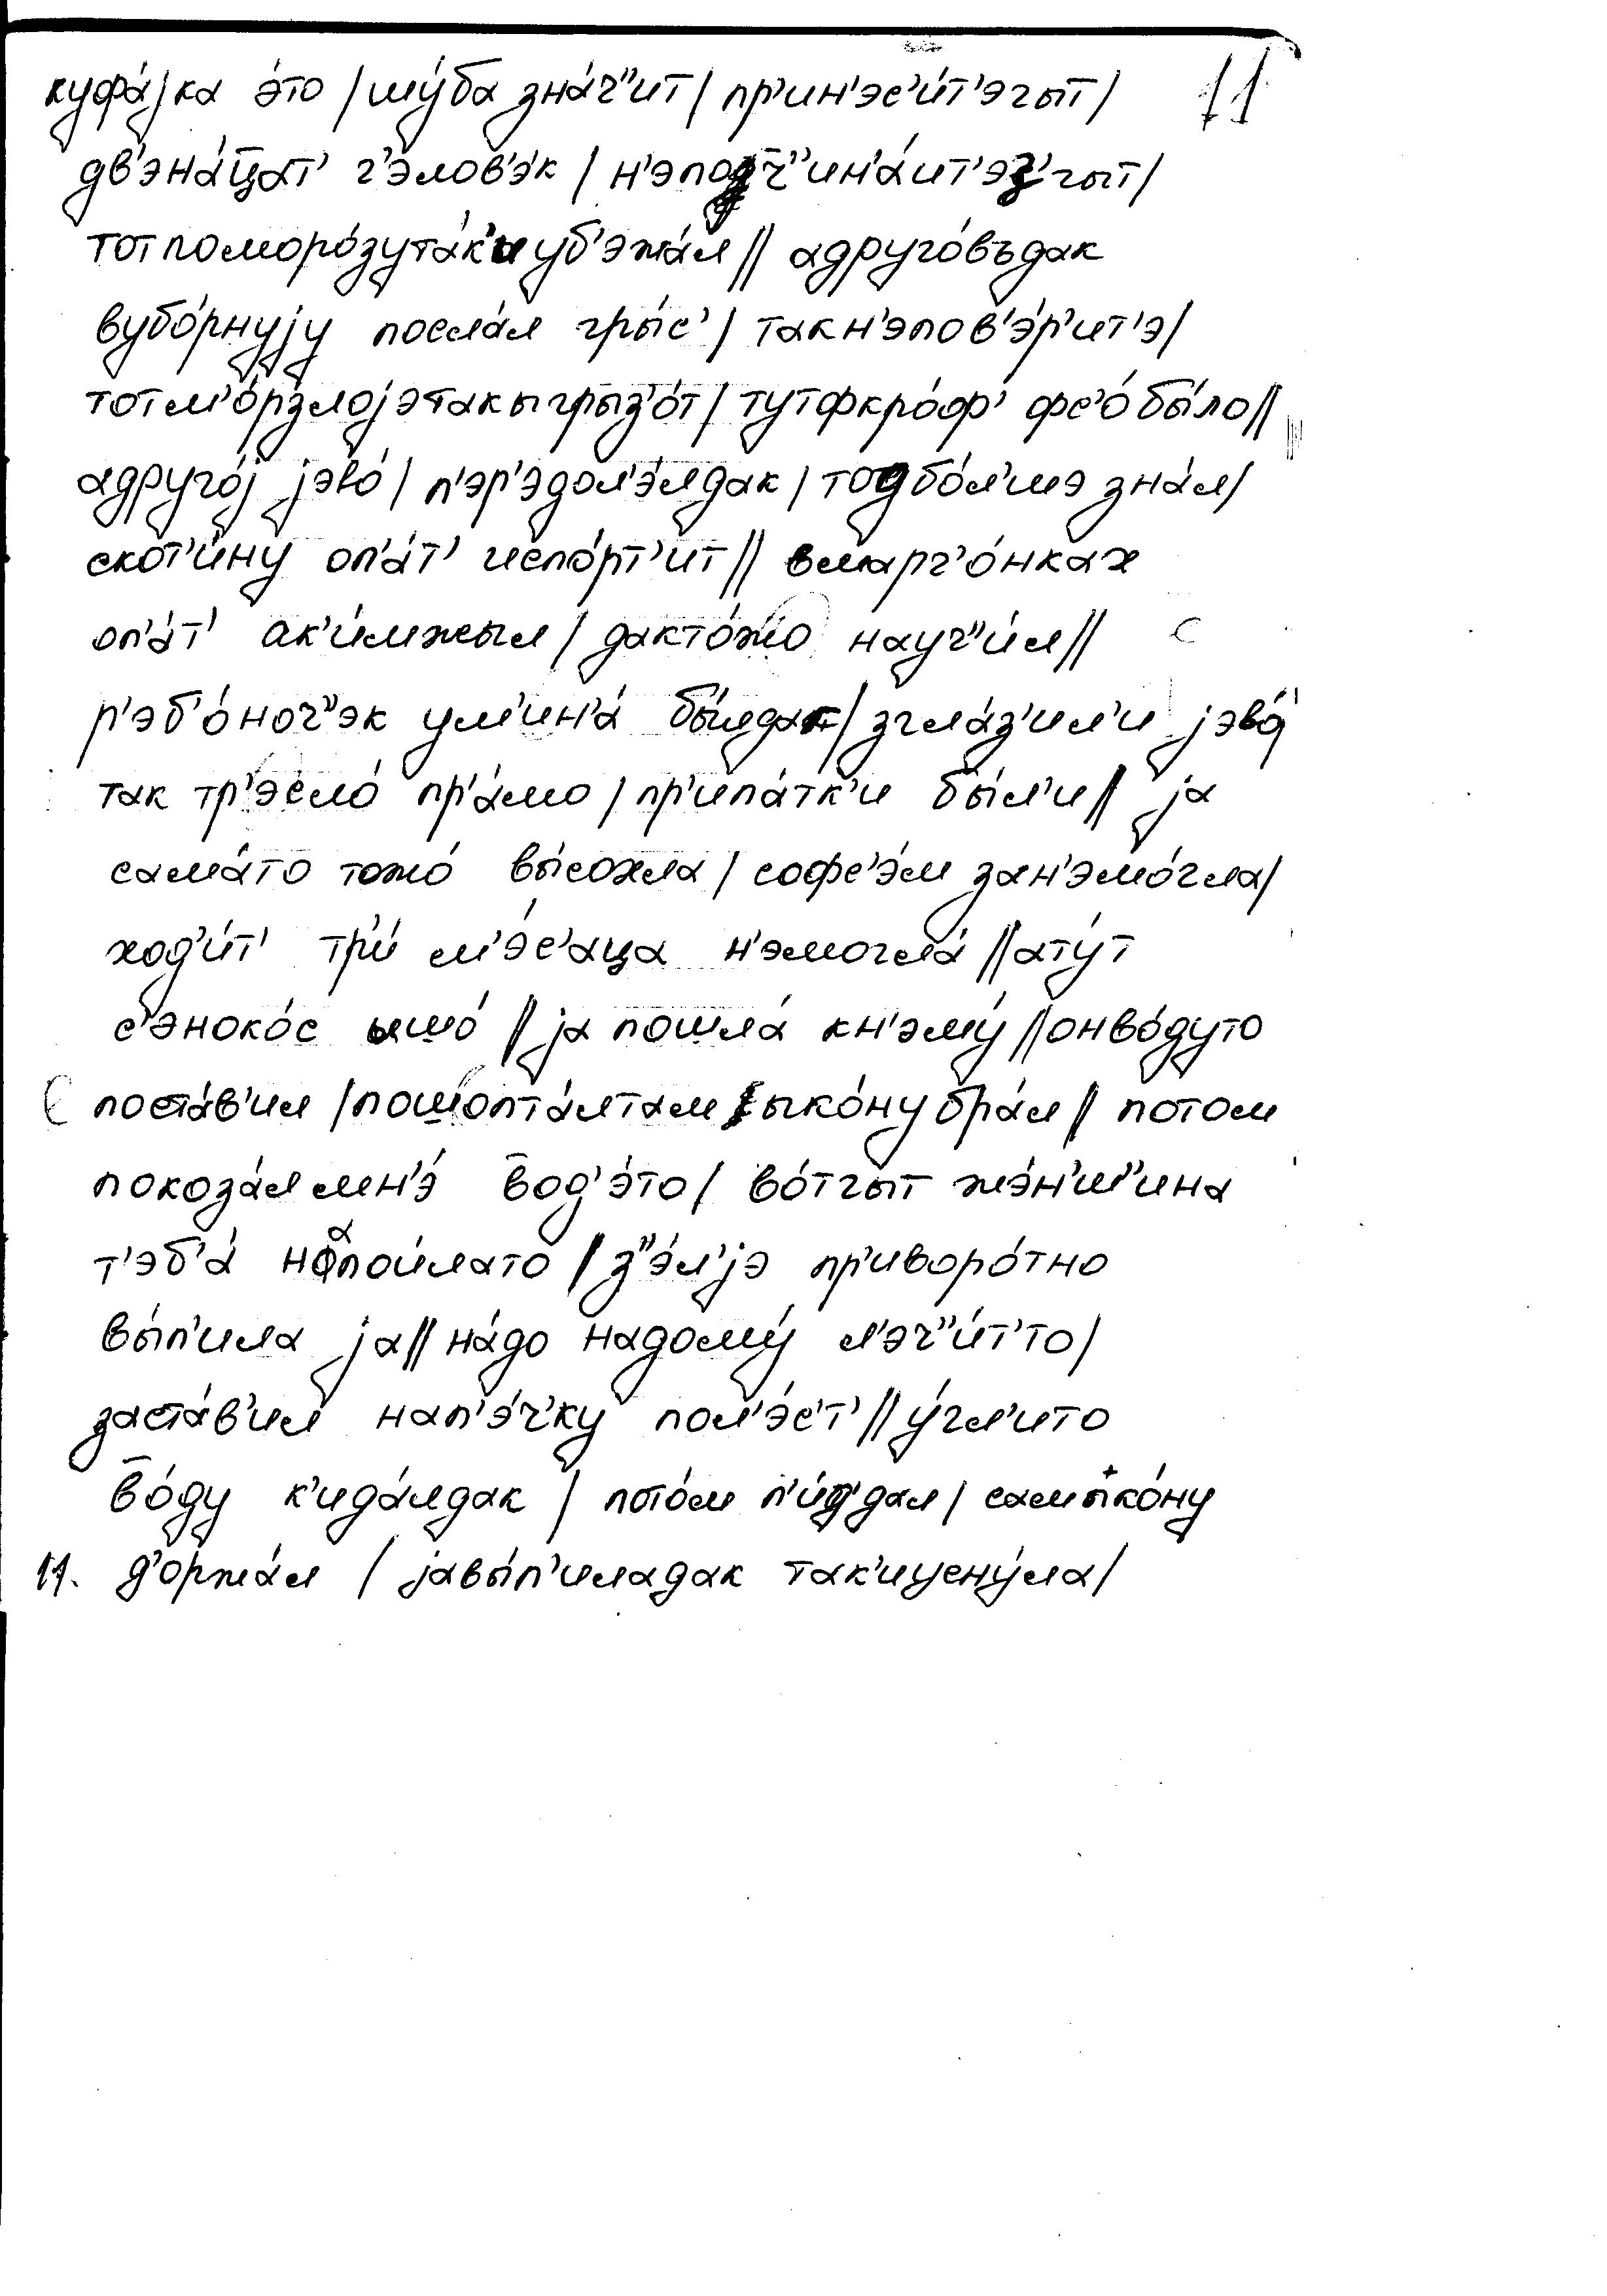 куфа́jка э́то / шу́ба зна́ч"ит / пр'ин'эс'и́т'эгыт / 11
дв'эна́ц̄ат' ч'элов'э́к / н'эподч"ин'а́ит'эз'гыт /
тотпоморо́зута́к'иуб'эжа́л // адруго́въдак
вубо́рнуjу посла́л гры́с' / такн'эпов'э́р'ит'э /
тотм'о́рзлоjэтакыгрыз'о́т / тутфкро́ф' фс'о́ бы́ло //
адруго́j jэво́ / п'эр'эдол'э́лдак / тодбо́л'шэ зна́л /
скот'и́ну оп'а́т' испо́рт'ит // вмарг'о́нках
оп'а́т' ак'и́мжыл / дакто́жо науч"и́л //
р'эб'о́ноч"эк ум'ин'а́ бы́лдак / згла́з'ил'и jэво́
так тр'эсло́ пр'а́мо / пр'ипа́тк'и бы́л'и // jа
сама́то тожо́ вы́сохла / софс'э́м зан'эмо́гла /
ход'и́т' тр'и́ м'э́с'аца н'эмогла́ // ату́т
с'эноко́с ышо́ // jа пошла́ кн'эму́ // онво́дуто
поста́в'ил / пошопта́лтам / ыко́ну бра́л // потом
покоза́л мн'э́ вод'э́то / во́тгыт жэ́н'ш"ина
т'эб'а́ напои́лато / з"э́л'jэ пр'иворо́тно
вы́п'ила jа // на́до надому́ л'эч"и́т'то /
заста́в'ил нап'э́ч'ку пол'э́с'т' // у́гл'ито
во́ду к'ида́лдак / пото́м п'и́д'дал / самыко́ну
11. д'оржа́л / jавы́п'иладак так'иусну́ла /